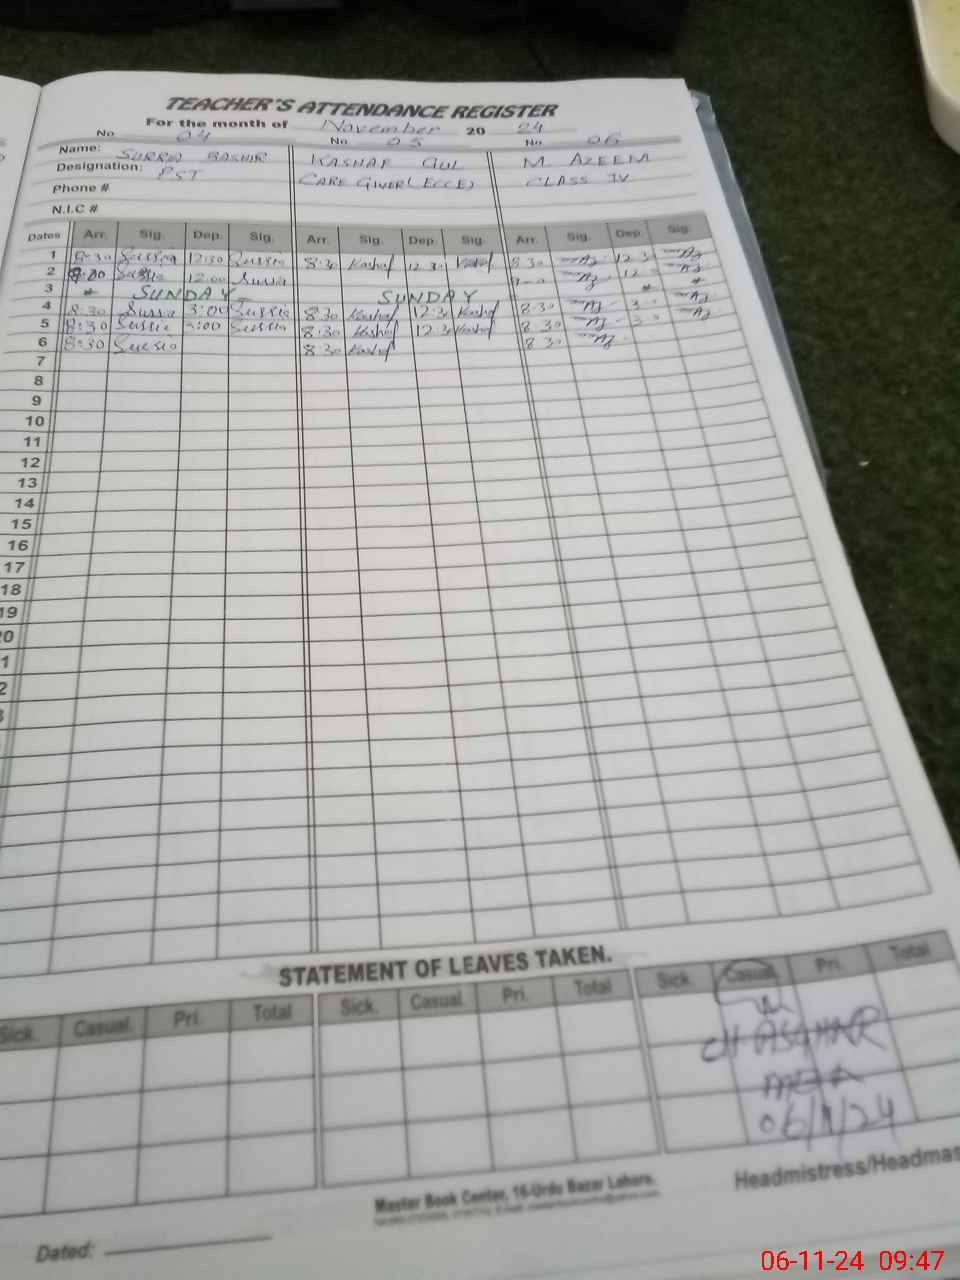 TEACHER'S ATTENDANCE REGISTER
For the month of November 20 24
No 04 No 05 No 06
Name: SURRIA BASHIR KASHAF GUL M. AZEEM
Designation: PST CARE GIVER (ECCE) CLASS IV
Phone #
N.I.C #
Dates Arr. Sig. Dep. Sig. Arr. Sig. Dep. Sig. Arr. Sig. Dep. Sig.
1 8:30 12:30 8:30 Kashaf 12:30 Kashaf 8:30 12:3
2 12:00 12
3 SUNDAY SUNDAY
4 8:30 3:00 8:30 Kashaf 12:30 Kashaf 8:30 3
5 8:30 3:00 8:30 Kashaf 12:30 Kashaf 8:30 3
6 8:30 8:30 Kashaf 8:30
7
8
9
10
11
12
13
14
15
16
17
18
19
20
1
2
3
STATEMENT OF LEAVES TAKEN.
Sick. Casual. Pri. Total Sick. Casual. Pri. Total Sick. Casual. Pri. Total
CH ASGHAR
MEA
06/11/24
Headmistress/Headmas
Master Book Center, 16-Urdu Bazar Lahore.
Dated:
06-11-24 09:47